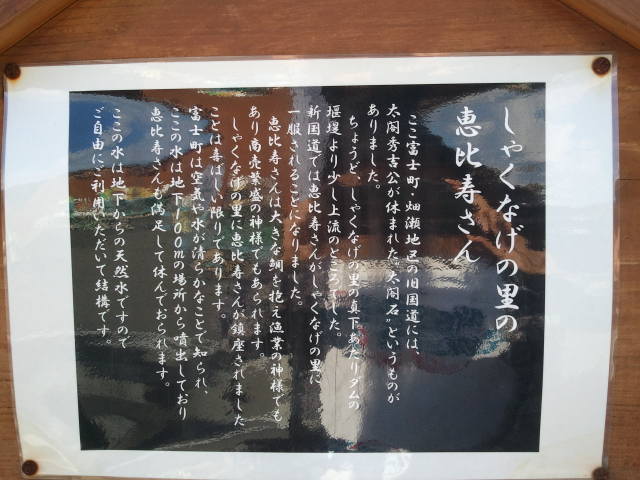 しゃくなげの里の
恵比寿さん
ここ富士町・畑瀬地区の旧国道には、
太閤秀吉公が休まれた“太閤石”というものが
ありました。
ちょうど、しゃくなげの里の真下あたりダムの
堰堤より少し上流のところでした。
新国道では恵比寿さんがしゃくなげの里に
一服されることになりました。
恵比寿さんは大きな鯛を抱え漁業の神様でも
あり商売繁盛の神様でもあられます。
しゃくなげの里に恵比寿さんが鎮座されました
ことは喜ばしい限りであります。
富士町は空気や水が清らかなことで知られ、
ここの水は地下100mの場所から噴出しており
恵比寿さんも満足して休んでおられます。
ここの水は地下からの天然水ですので
ご自由にご利用いただいて結構です。